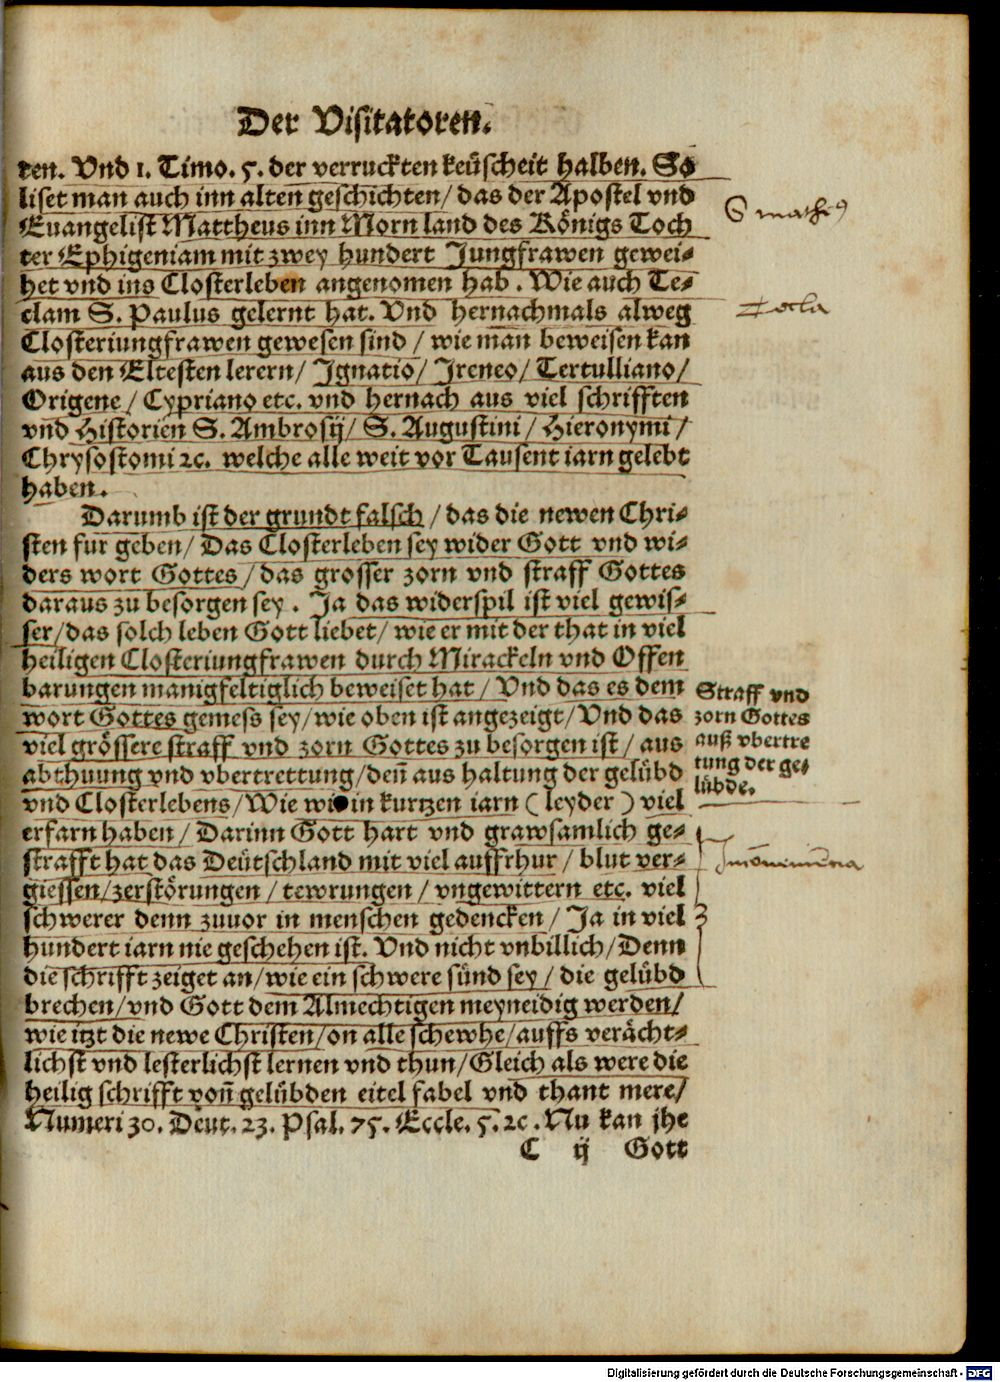 Der Visitatoren.
ren. Vnd 1. Timo. 5. der verruckten keüscheit halben. So
liset man auch inn alten geschichten/ das der Apostel vnd
Euangelist Mattheus inn Morn land des Königs Toch
ter Ephigeniam mit zwey hundert Jungfrawen gewei⸗
het vnd ins Closterleben angenomen hab. Wie auch Te⸗
clam S. Paulus gelernt hat. Vnd hernachmals alweg
Closteriungfrawen gewesen sind / wie man beweisen kan
aus den Eltesten lerern/ Ignatio/ Ireneo/ Tertulliano/
Origene/ Cypriano etc. vnd hernach aus viel schrifften
vnd Historien S. Ambrosij/ S. Augustini/ Hieronymi/
Chrysostomi ꝛc. welche alle weit vor Tausent iarn gelebt
haben.
S matheꝰ
Tecla
Darumb ist der grundt falsch / das die newen Chri⸗
sten fur geben/ Das Closterleben sey wider Gott vnd wi⸗
ders wort Gottes/ das grosser zorn vnd straff Gottes
daraus zu besorgen sey. Ja das widerspil ist viel gewis⸗
ser/ das solch leben Gott liebet/ wie er mit der that in viel
heiligen Closteriungfrawen durch Mirackeln vnd Offen
barungen manigfeltiglich beweiset hat/ Vnd das es dem
wort Gottes gemess sey/ wie oben ist angezeigt/ Vnd das
viel grössere straff vnd zorn Gottes zu besorgen ist/ aus
abthuung vnd vbertrettung/ deñ aus haltung der gelübd
vnd Closterlebens/ Wie wi in kurtzen iarn (leyder) viel
erfarn haben/ Darinn Gott hart vnd grawsamlich ge⸗
strafft hat das Deütschland mit viel auffrhur/ blut ver⸗
giessen/ zerstörungen/ tewrungen/ vngewittern etc. viel
schwerer denn zuuor in menschen gedencken/ Ja in viel
hundert iarn nie geschehen ist. Vnd nicht vnbillich/ Denn
die schrifft zeiget an/ wie ein schwere sünd sey/ die gelübd
brechen/ vnd Gott dem Almechtigen meyneidig werden/
wie itzt die newe Christen/ on alle schewhe/ auffs verächt⸗
lichst vnd lesterlichst lernen vnd thun/ Gleich als were die
heilig schrifft voñ gelübden eitel fabel vnd thant mere/
Numeri 30. Deut. 23. Psal. 75. Eccle. 5. ꝛc. Nu kan jhe
Straff vnd
zorn Gottes
auß vbertre
tung der ge⸗
lübde.
C ij Gott
Digitalisierung gefördert durch die Deutsche Forschungsgemeinschaft - DFG